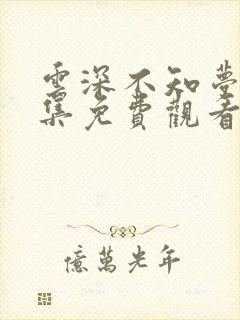 雲深不知夢
集免費觀看
億萬光年